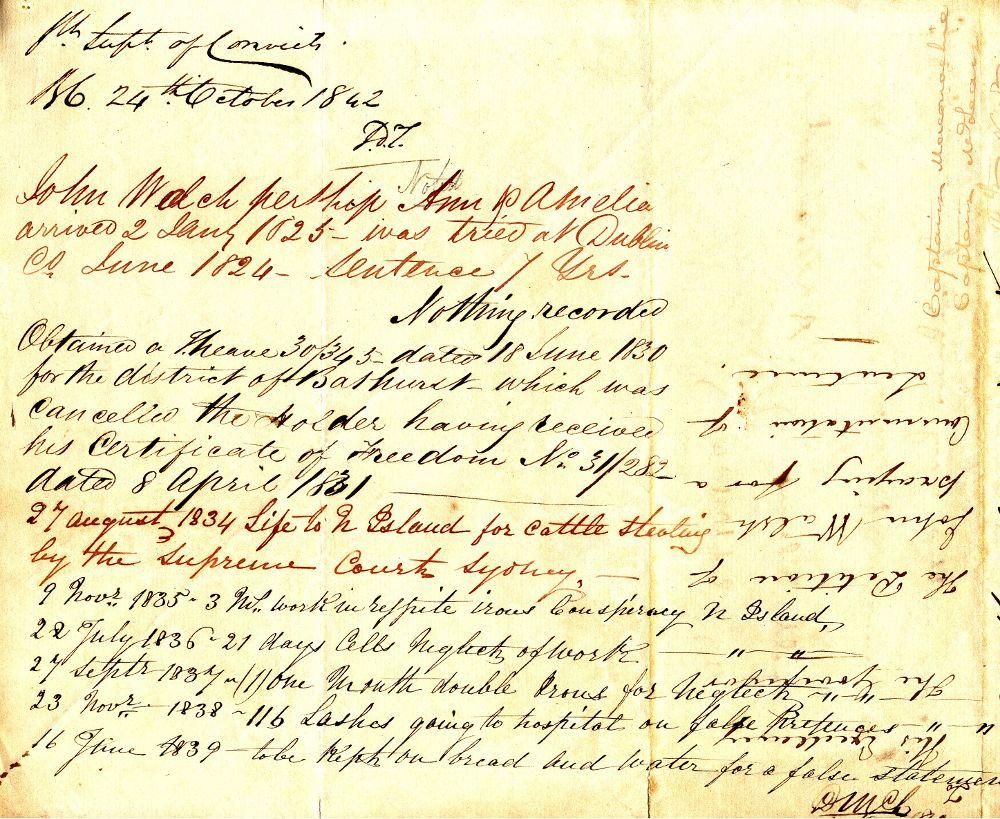 Supt. of Convicts.
24th October 1842
Noted
John Walch per ship Ann & Amelia
arrived 2 Jany 1825 - was tried at Dublin
Co. June 1824 - Sentence 7 Yrs.
Nothing recorded
Obtained a T. Leave 30/345 dated 18 June 1830
for the district of Bathurst which was
cancelled the Holder having received
his Certificate of Freedom No. 31/282
dated 8 April 1831
27 August 1834 Life to N Island for cattle stealing
by the Supreme Court Sydney. -
9 Novr. 1835 - 3 work in irons Conspiracy N Island,
22 July 1836 - 21 days Cells Neglect of work - " -
27 Septr 1837 - (1) One Month double Irons for Neglect - " -
23 Novr. 1838 - 116 Lashes going to hospital on false Pretences - " "
16 June 1839 - to be kept on bread and water for a false statement
His Excellency
The Governor
The Petition of
John Walsh
praying for a
Commutation of
Sentence.
Captain Maconochie
Captain